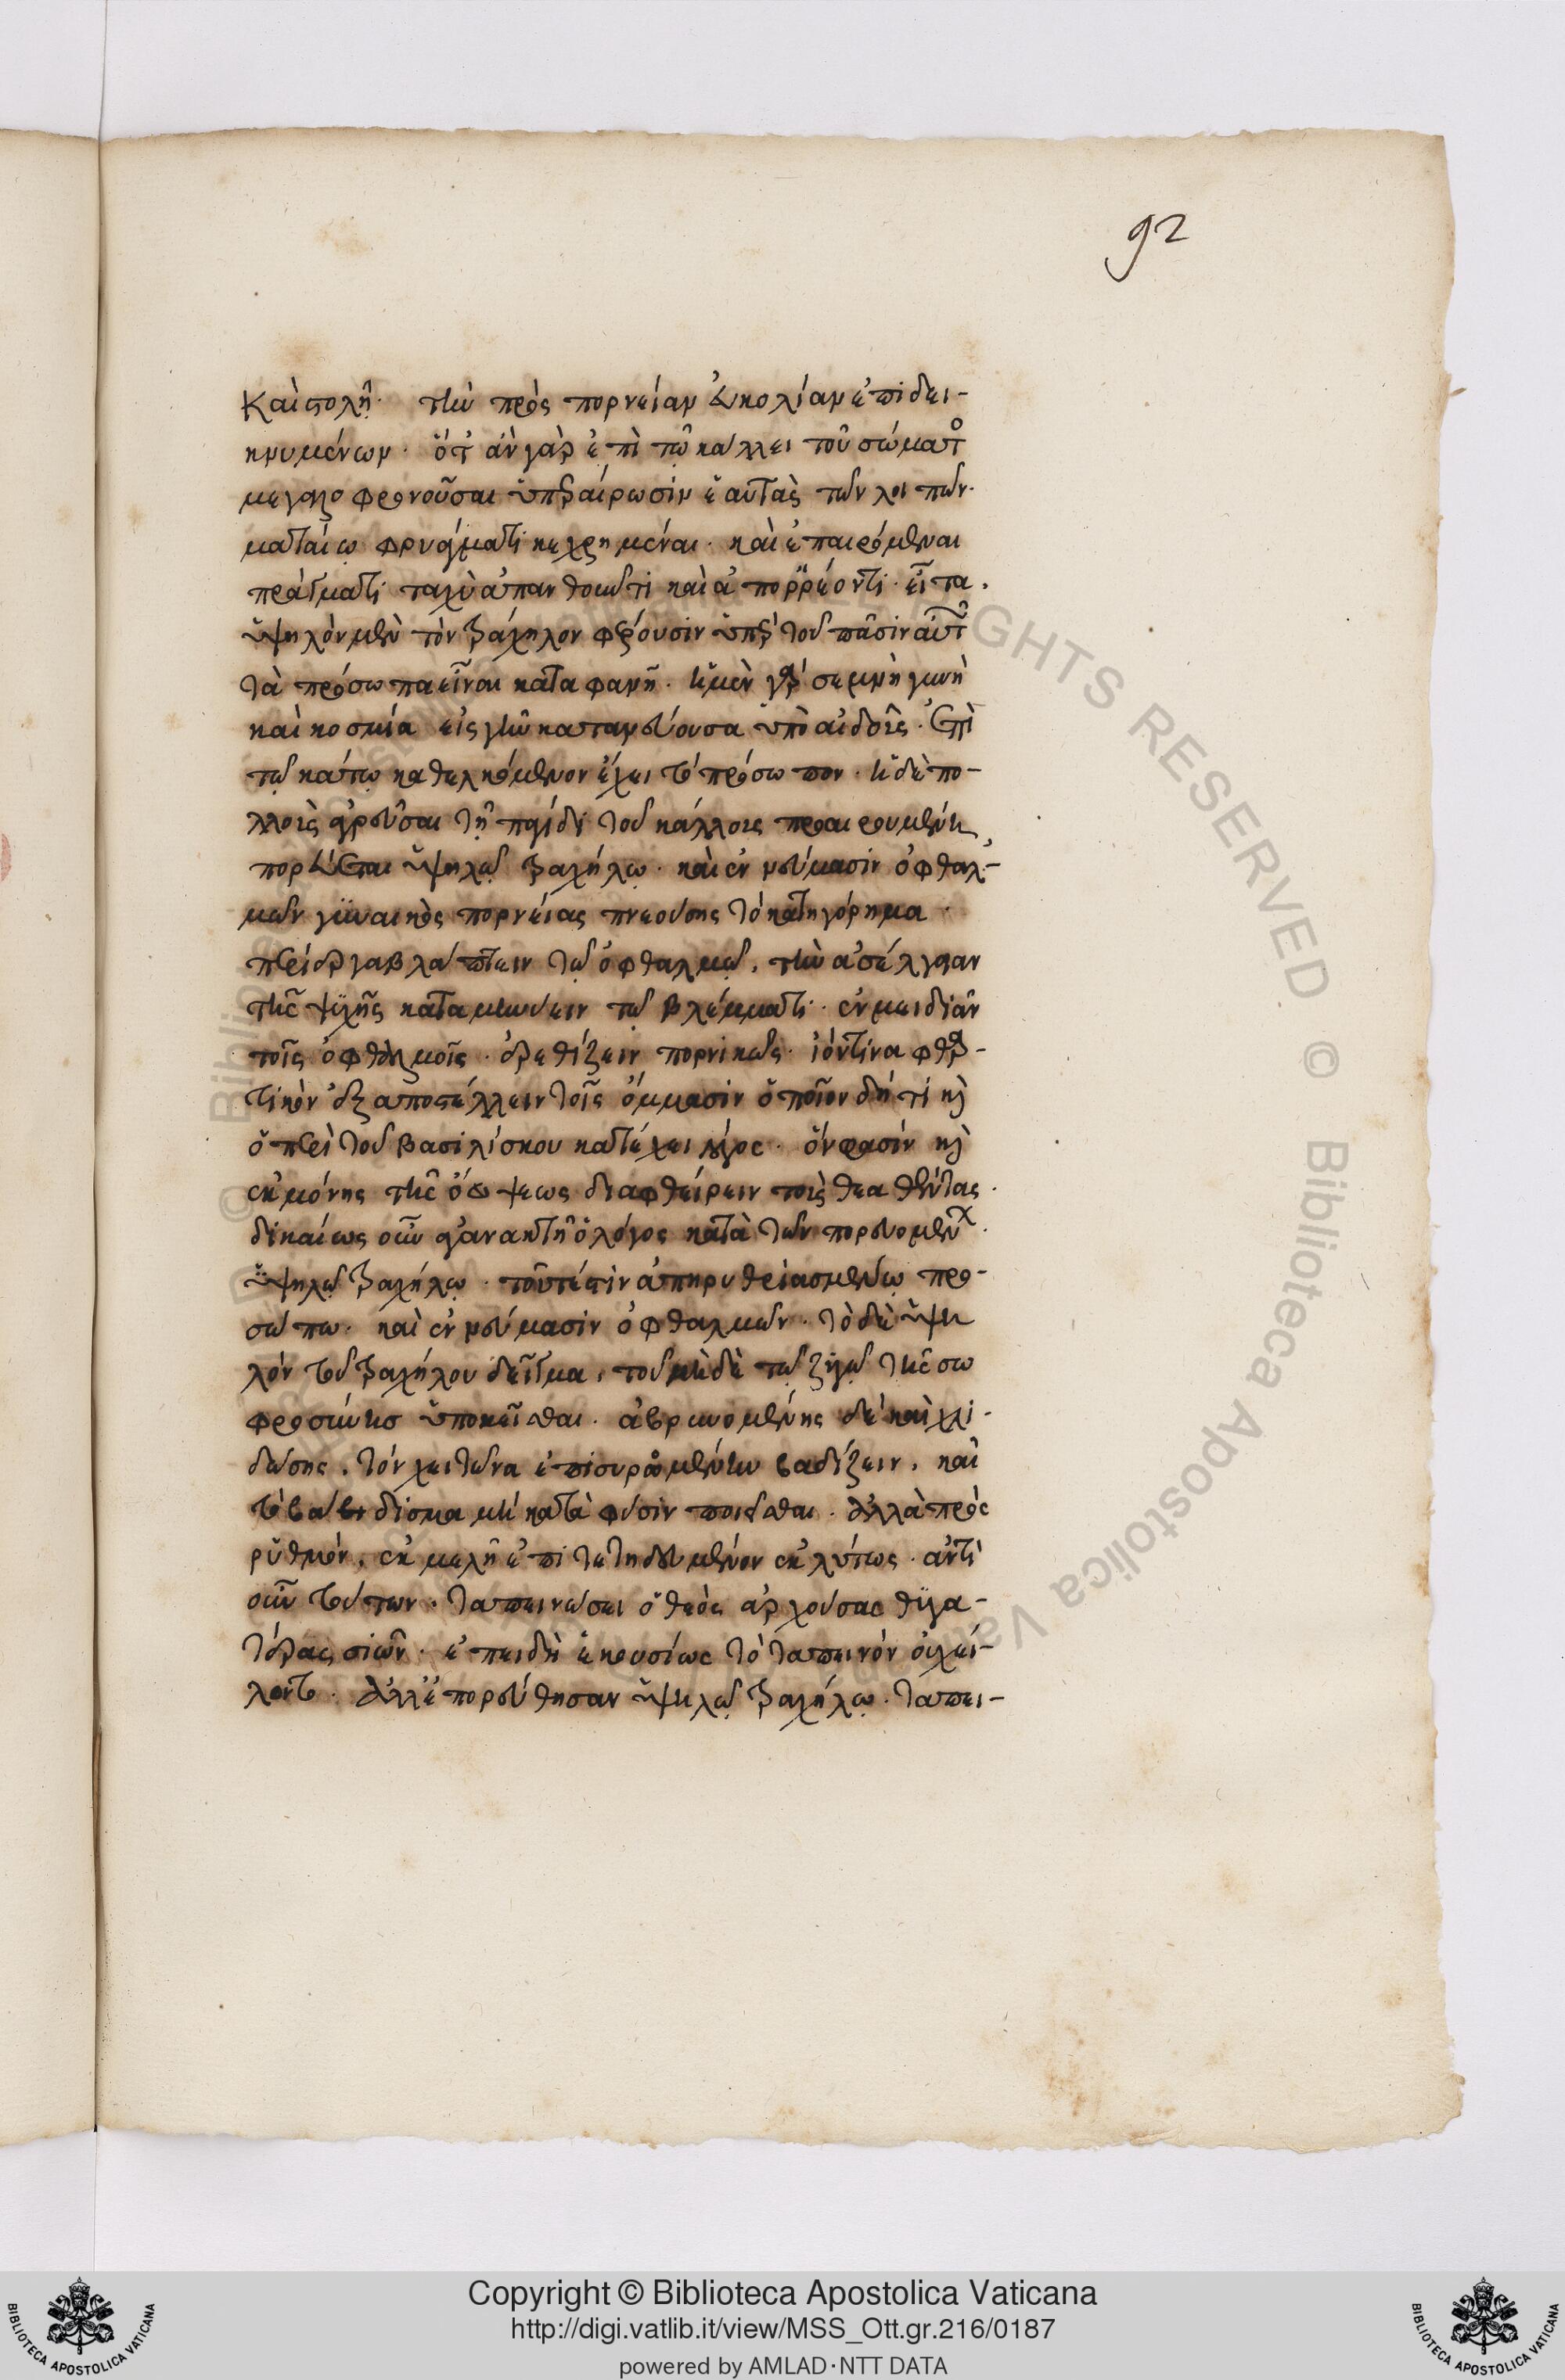 92
Καὶ στολῇ· τὴν πρὸς πορνείαν εὐκολίαν ἐπιδει-
κνυμένων· ὅτ' ἂν γὰρ ἐπὶ τῷ κάλλει τοῦ σώματος
μεγαλοφρονοῦσαι ὑπεραίρωσιν ἑαυτὰς τῶν λοιπῶν·
ματαίῳ φρυάγματι κεχρημέναι· καὶ ἐπαιρόμεναι
πράγματι ταχὺ ἀπανθοῦντι καὶ ἀπορρέοντι· εἶτα,
ὑψηλὸν μὲν τὸν τράχηλον φέρουσιν ὑπὲρ τοῦ πᾶσιν αὐτῶν
τὰ πρόσωπα εἶναι καταφανῆ· ἡ μὲν γὰρ σεμνὴ γυνὴ
καὶ κοσμία εἰς γῆν κατανεύουσα ὑπὸ αἰδοῦς· ἐπὶ
τῷ κάτω καθελκόμενον ἔχει τὸ πρόσωπον· ἡ δὲ πο-
λλοὺς ἀγρεῦσαι τῇ παγίδι τοῦ κάλλους προαιρουμένη,
πορεύεται ὑψηλῷ τραχήλῳ· καὶ ἐν νεύμασιν ὀφθαλ-
μῶν γυναικὸς πορνείας πνεούσης τὸ κατηγόρημα·
περίεργα βλάπτειν τῷ ὀφθαλμῷ, τὴν ἀσέλγειαν
τῆς ψυχῆς καταμηνύειν τῷ βλέμματι· ἐνμειδιᾶν
τοῖς ὀφθαλμοῖς· ἐρεθίζειν πορνικῶς· ἰόν τινα φθαρ-
τικὸν ἐξαποστέλλειν τοῖς ὄμμασιν ὁποῖον δή τι καὶ
ὁ περὶ τοῦ βασιλίσκου κατέχει λόγος· ὅν φασιν καὶ
ἐκ μόνης τῆς ὄψεως διαφθείρειν τοὺς θεαθέντας·
δικαίως οὖν ἀγανακτεῖ ὁ λόγος κατὰ τῶν πορευομένων·
ὑψηλῷ τραχήλῳ· τουτέστιν ἀπηρυθριασμένῳ προ-
σώπῳ· καὶ ἐν νεύμασιν ὀφθαλμῶν· τὸ δὲ ὑψη
λὸν τοῦ τραχήλου δεῖγμα, τοῦ μηδὲ τῷ ζυγῷ τῆς σω
φροσύνησ ὑποκεῖσθαι· ἁβρυνομένης δὲ καὶ χλι-
δώσης, τὸν χειτῶνα ἐπισυρομένην βαδίζειν, καὶ
τὸ βάδισμα μὴ κατὰ φύσιν ποιεῖσθαι· ἀλλὰ πρὸς
ρυθμόν, ἐκμελῆ ἐπιτετηδευμένον ἐκλύτως· ἀντὶ
οὖν τούτων, ταπεινώσει ὁ θεὸς ἀρχούσας θυγα-
τέρας σιών· ἐπειδὴ ἑκουσίως τὸ ταπεινὸν οὐχ εἵ-
λοντο· ἀλλ' ἐπορεύθησαν ὑψηλῷ τραχήλῳ· ταπει-
Copyright © Biblioteca Apostolica Vaticana
http://digi.vatlib.it/view/MSS_Ott.gr.216/0187
powered by AMLAD·NTT DATA